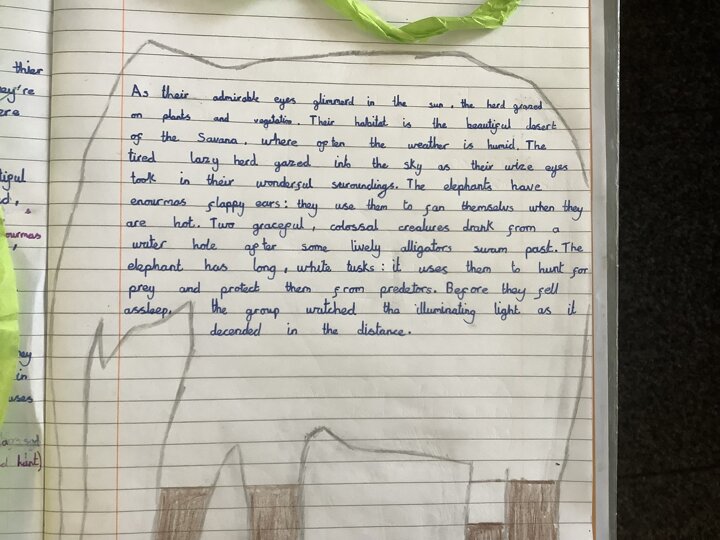 thier
they're
ere
tiful
d,
s
ourmas
,
ey
in
uses
d hunt)
As their admirable eyes glimmerd in the sun, the herd grazed
on plants and vegetation. Their habitat is the beautiful desert
of the Savana, where often the weather is humid. The
tired lazy herd gazed into the sky as their wize eyes
took in their wonderful suroundings. The elephants have
enourmas flappy ears: they use them to fan themselvs when they
are hot. Two graceful, colossal creatures drank from a
water hole after some lively alligators swam past. The
elephant has long, white tusks: it uses them to hunt for
prey and protect them from predetors. Before they fell
assleep, the group watched tha illuminating light as it
decended in the distance.